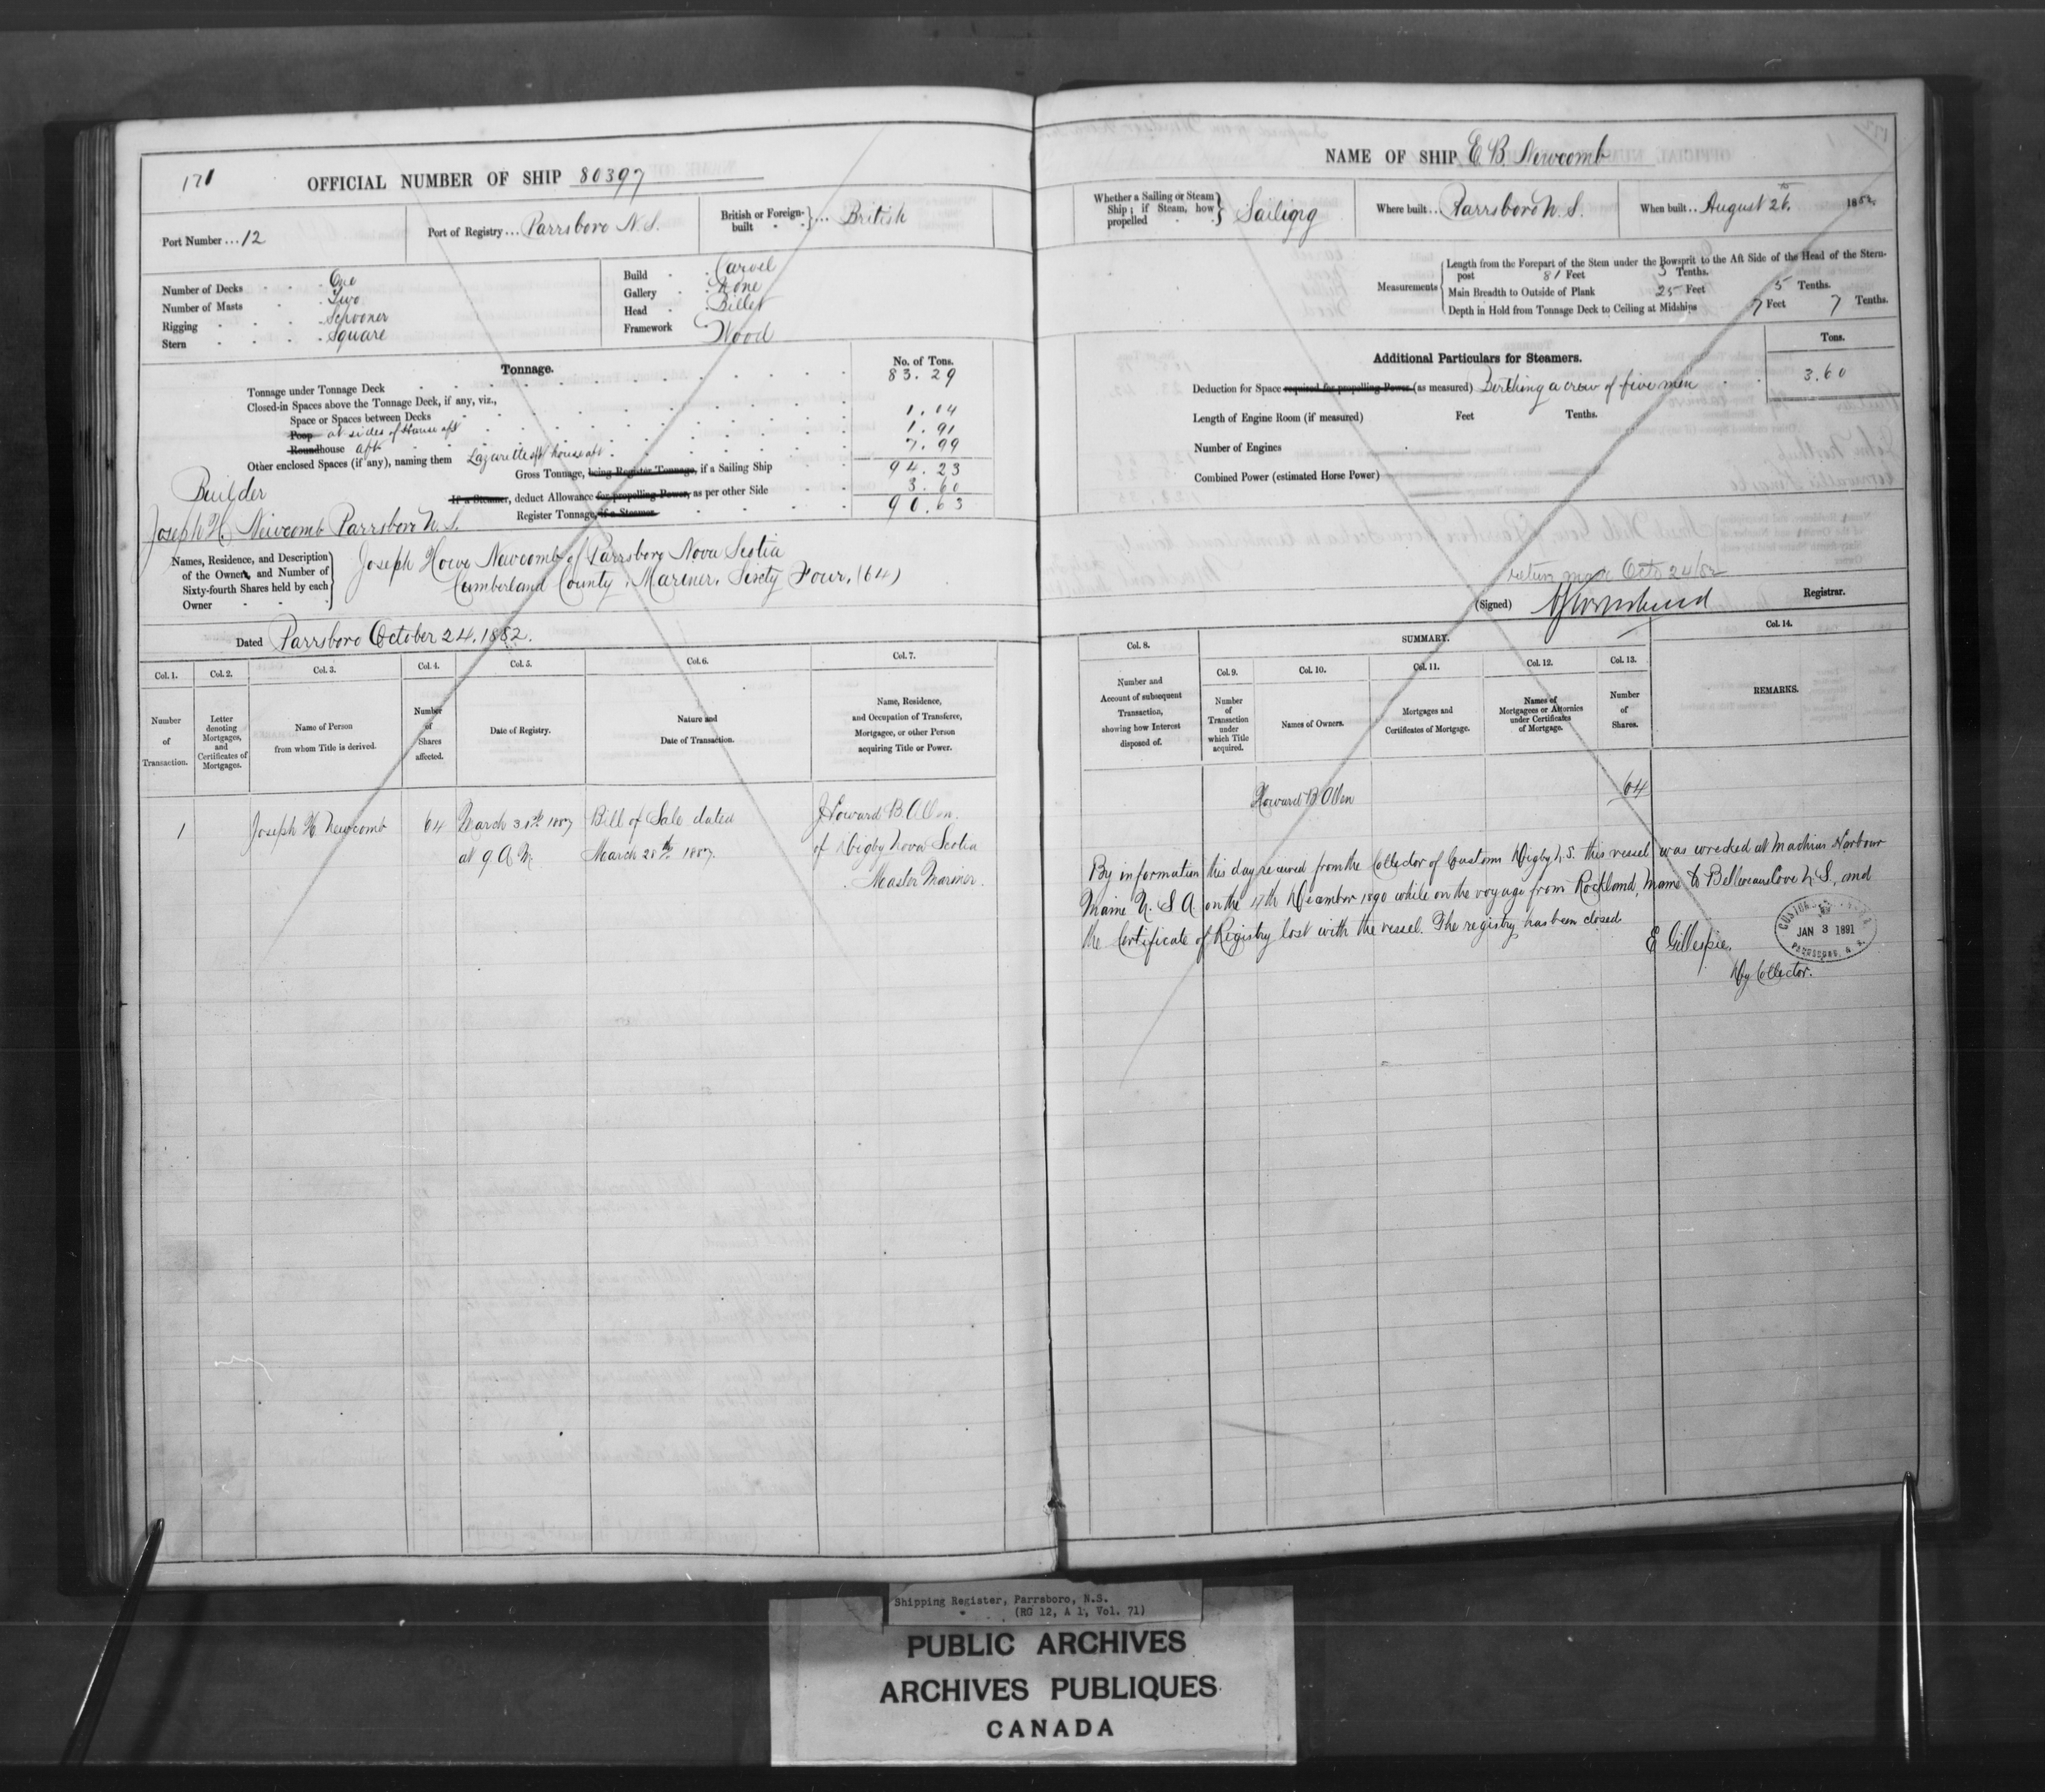 171
OFFICIAL NUMBER OF SHIP 80397
Port Number ... 12
Port of Registry ... Parrsboro N.S.
British or Foreign-built ... British
Number of Decks One
Number of Masts Two
Rigging Schooner
Stern Square
Build Carvel
Gallery None
Head Billet
Framework Wood
Tonnage. No. of Tons.
Tonnage under Tonnage Deck 83.29
Closed-in Spaces above the Tonnage Deck, if any, viz.,
Space or Spaces between Decks 1.04
Poop at sides of House aft 1.91
Roundhouse aft 7.99
Other enclosed Spaces (if any), naming them Lazarette aft house aft
Gross Tonnage, being Register Tonnage, if a Sailing Ship 94.23
If a Steamer, deduct Allowance for propelling Power, as per other Side 3.60
Register Tonnage, if a Steamer 90.63
Builder
Joseph H. Newcomb Parrsboro N.S.
Names, Residence, and Description of the Owners, and Number of Sixty-fourth Shares held by each Owner
Joseph Howe Newcomb of Parrsboro Nova Scotia
Cumberland County, Mariner, Sixty Four, (64)
Dated Parrsboro October 24. 1882.
Col. 1. Col. 2. Col. 3. Col. 4. Col. 5. Col. 6. Col. 7.
Number of Transaction.
Letter denoting Mortgages, and Certificates of Mortgages.
Name of Person from whom Title is derived.
Number of Shares affected.
Date of Registry.
Nature and Date of Transaction.
Name, Residence, and Occupation of Transferee, Mortgagee, or other Person acquiring Title or Power.
1 Joseph H Newcomb 64 March 31st 1887 Bill of Sale dated Howard B Allen
at 9 A M. March 28th 1887. of Digby Nova Scotia
Master Mariner.
NAME OF SHIP E. B. Newcomb
Whether a Sailing or Steam Ship; if Steam, how propelled Sailing
Where built ... Parrsboro N.S.
When built .. August 26th 1882.
Measurements
Length from the Forepart of the Stem under the Bowsprit to the Aft Side of the Head of the Stern-
post 81 Feet 3 Tenths.
Main Breadth to Outside of Plank 25 Feet 5 Tenths.
Depth in Hold from Tonnage Deck to Ceiling at Midships 7 Feet 7 Tenths.
Additional Particulars for Steamers. Tons.
Deduction for Space required for propelling Power (as measured) Berthing a crew of five men 3.60
Length of Engine Room (if measured) Feet Tenths.
Number of Engines
Combined Power (estimated Horse Power)
return made Octo 24/82
(Signed) Registrar.
Col. 8. SUMMARY. Col. 14.
Col. 9. Col. 10. Col. 11. Col. 12. Col. 13.
Number and Account of subsequent Transaction, showing how Interest disposed of.
Number of Transaction under which Title acquired.
Names of Owners.
Mortgages and Certificates of Mortgage.
Names of Mortgagees or Attornies under Certificates of Mortgage.
Number of Shares.
REMARKS.
Howard B Allen 64
By information this day received from the Collector of Customs Digby N.S. this vessel was wrecked at Machias Harbour
Maine U. S. A. on the 17th December 1890 while on the voyage from Rockland, Maine to Belliveau Cove N.S., and
the Certificate of Registry lost with the vessel. The registry has been closed
E Gillespie.
Dy Collector.
JAN 3 1891
PARRSBORO, N. S.
Shipping Register, Parrsboro, N.S.
(RG 12, A 1, Vol. 71)
PUBLIC ARCHIVES
ARCHIVES PUBLIQUES
CANADA